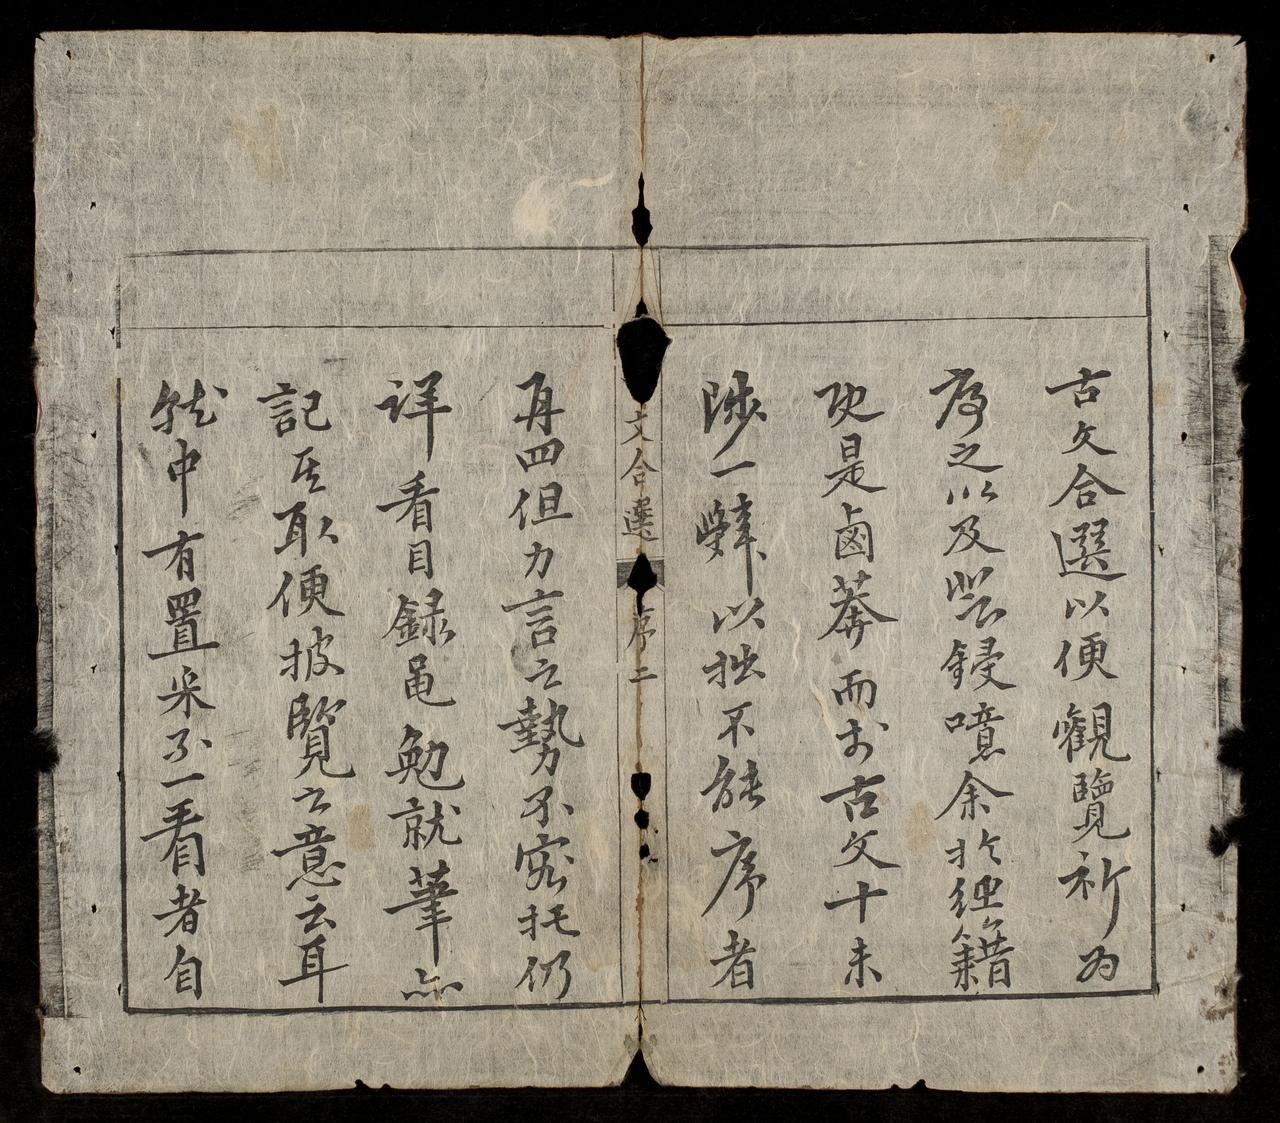 古文合選以便觀覽祈為
序之以及災鋟噫余於經籍
地是鹵莽而於古文十未
陟一辤以拙不能序者
文合選
序二
再四但力言之勢不容托仍
詳看目録黽勉就筆
記其取便披覽之意云耳
就中有置采不一看者自